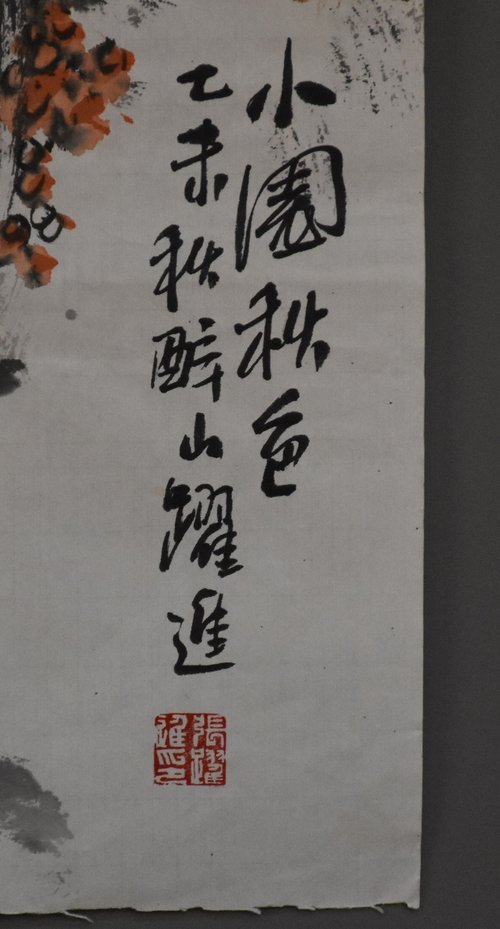 小園秋色
乙未秋醉山躍進
張躍
進印